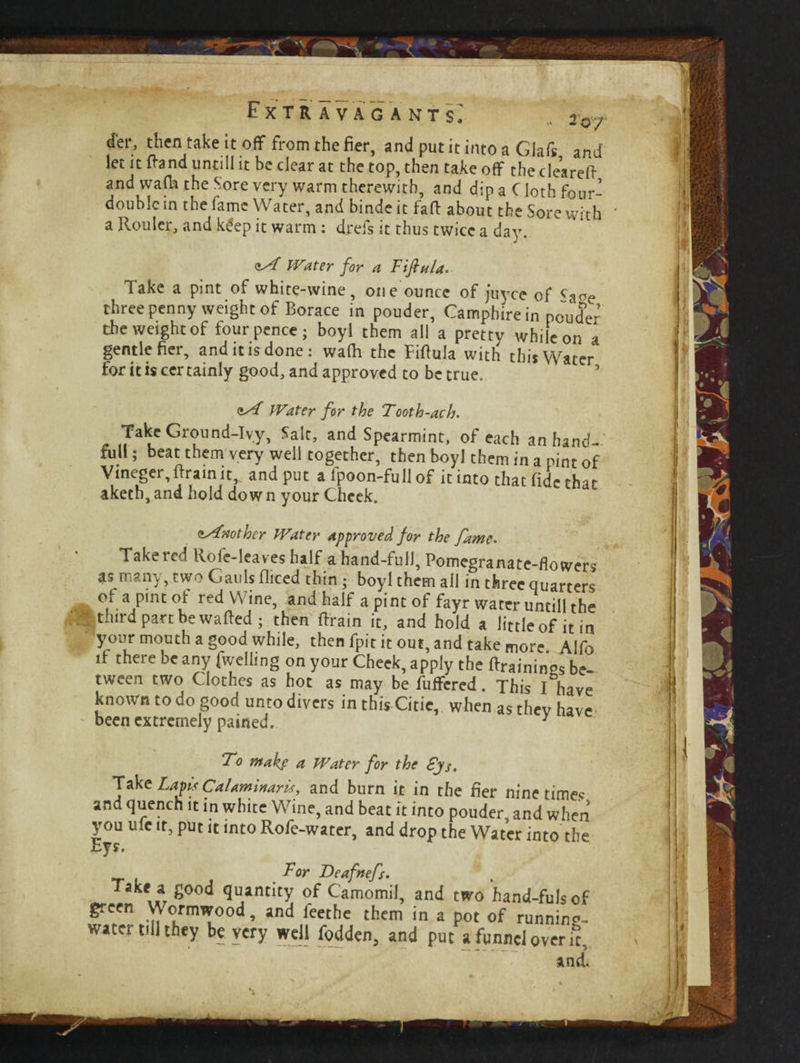 EXTRAVAGANTS. 207
der, then take it off from the fier, and put it into a Glaſs, and
let it ſtand untill it be clear at the top, then take off the cleareſt,
and waſh the Sore very warm therewith, and dip a Cloth four-
double in the ſame Water, and binde it faſt about the Sore with
a Rouler, and keep it warm : dreſs it thus twice a day.
A Water for a Fiſtula.
Take a pint of white-wine, one ounce of juyce of Sage,
three penny weight of Borace in pouder, Camphire in pouder
the weight of four pence ; boyl them all a pretty while on a
gentle fier, and it is done : waſh the Fiſtula with this Water,
for it is certainly good, and approved to be true.
A Water for the Tooth-ach.
Take Ground-Ivy, Salt, and Spearmint, of each an hand-
full ; beat them very well together, then boyl them in a pint of
Vineger, ſtrain it, and put a ſpoon-full of it into that ſide that
aketh, and hold down your Cheek.
Another Water approved for the ſame.
Take red Roſe-leaves half a hand-full, Pomegranate-flowers
as many, two Gauls ſliced thin ; boyl them all in three quarters
of a pint of red Wine, and half a pint of fayr water untill the
third part be waſted ; then ſtrain it, and hold a little of it in
your mouth a good while, then ſpit it out, and take more. Alſo
if there be any ſwelling on your Cheek, apply the ſtrainings be-
tween two Clothes as hot as may be ſuffered. This I have
known to do good unto divers in this Citie, when as they have
been extremely pained.
To make a Water for the Eys.
Take Lapis Calaminaris, and burn it in the fier nine times,
and quench it in white Wine, and beat it into pouder, and when
you uſe it, put it into Roſe-water, and drop the Water into the
Eys.
For Deafneſs.
Take a good quantity of Camomil, and two hand-fuls of
green Wormwood, and ſeethe them in a pot of running-
water till they be very well ſodden, and put a funnel over it,
and